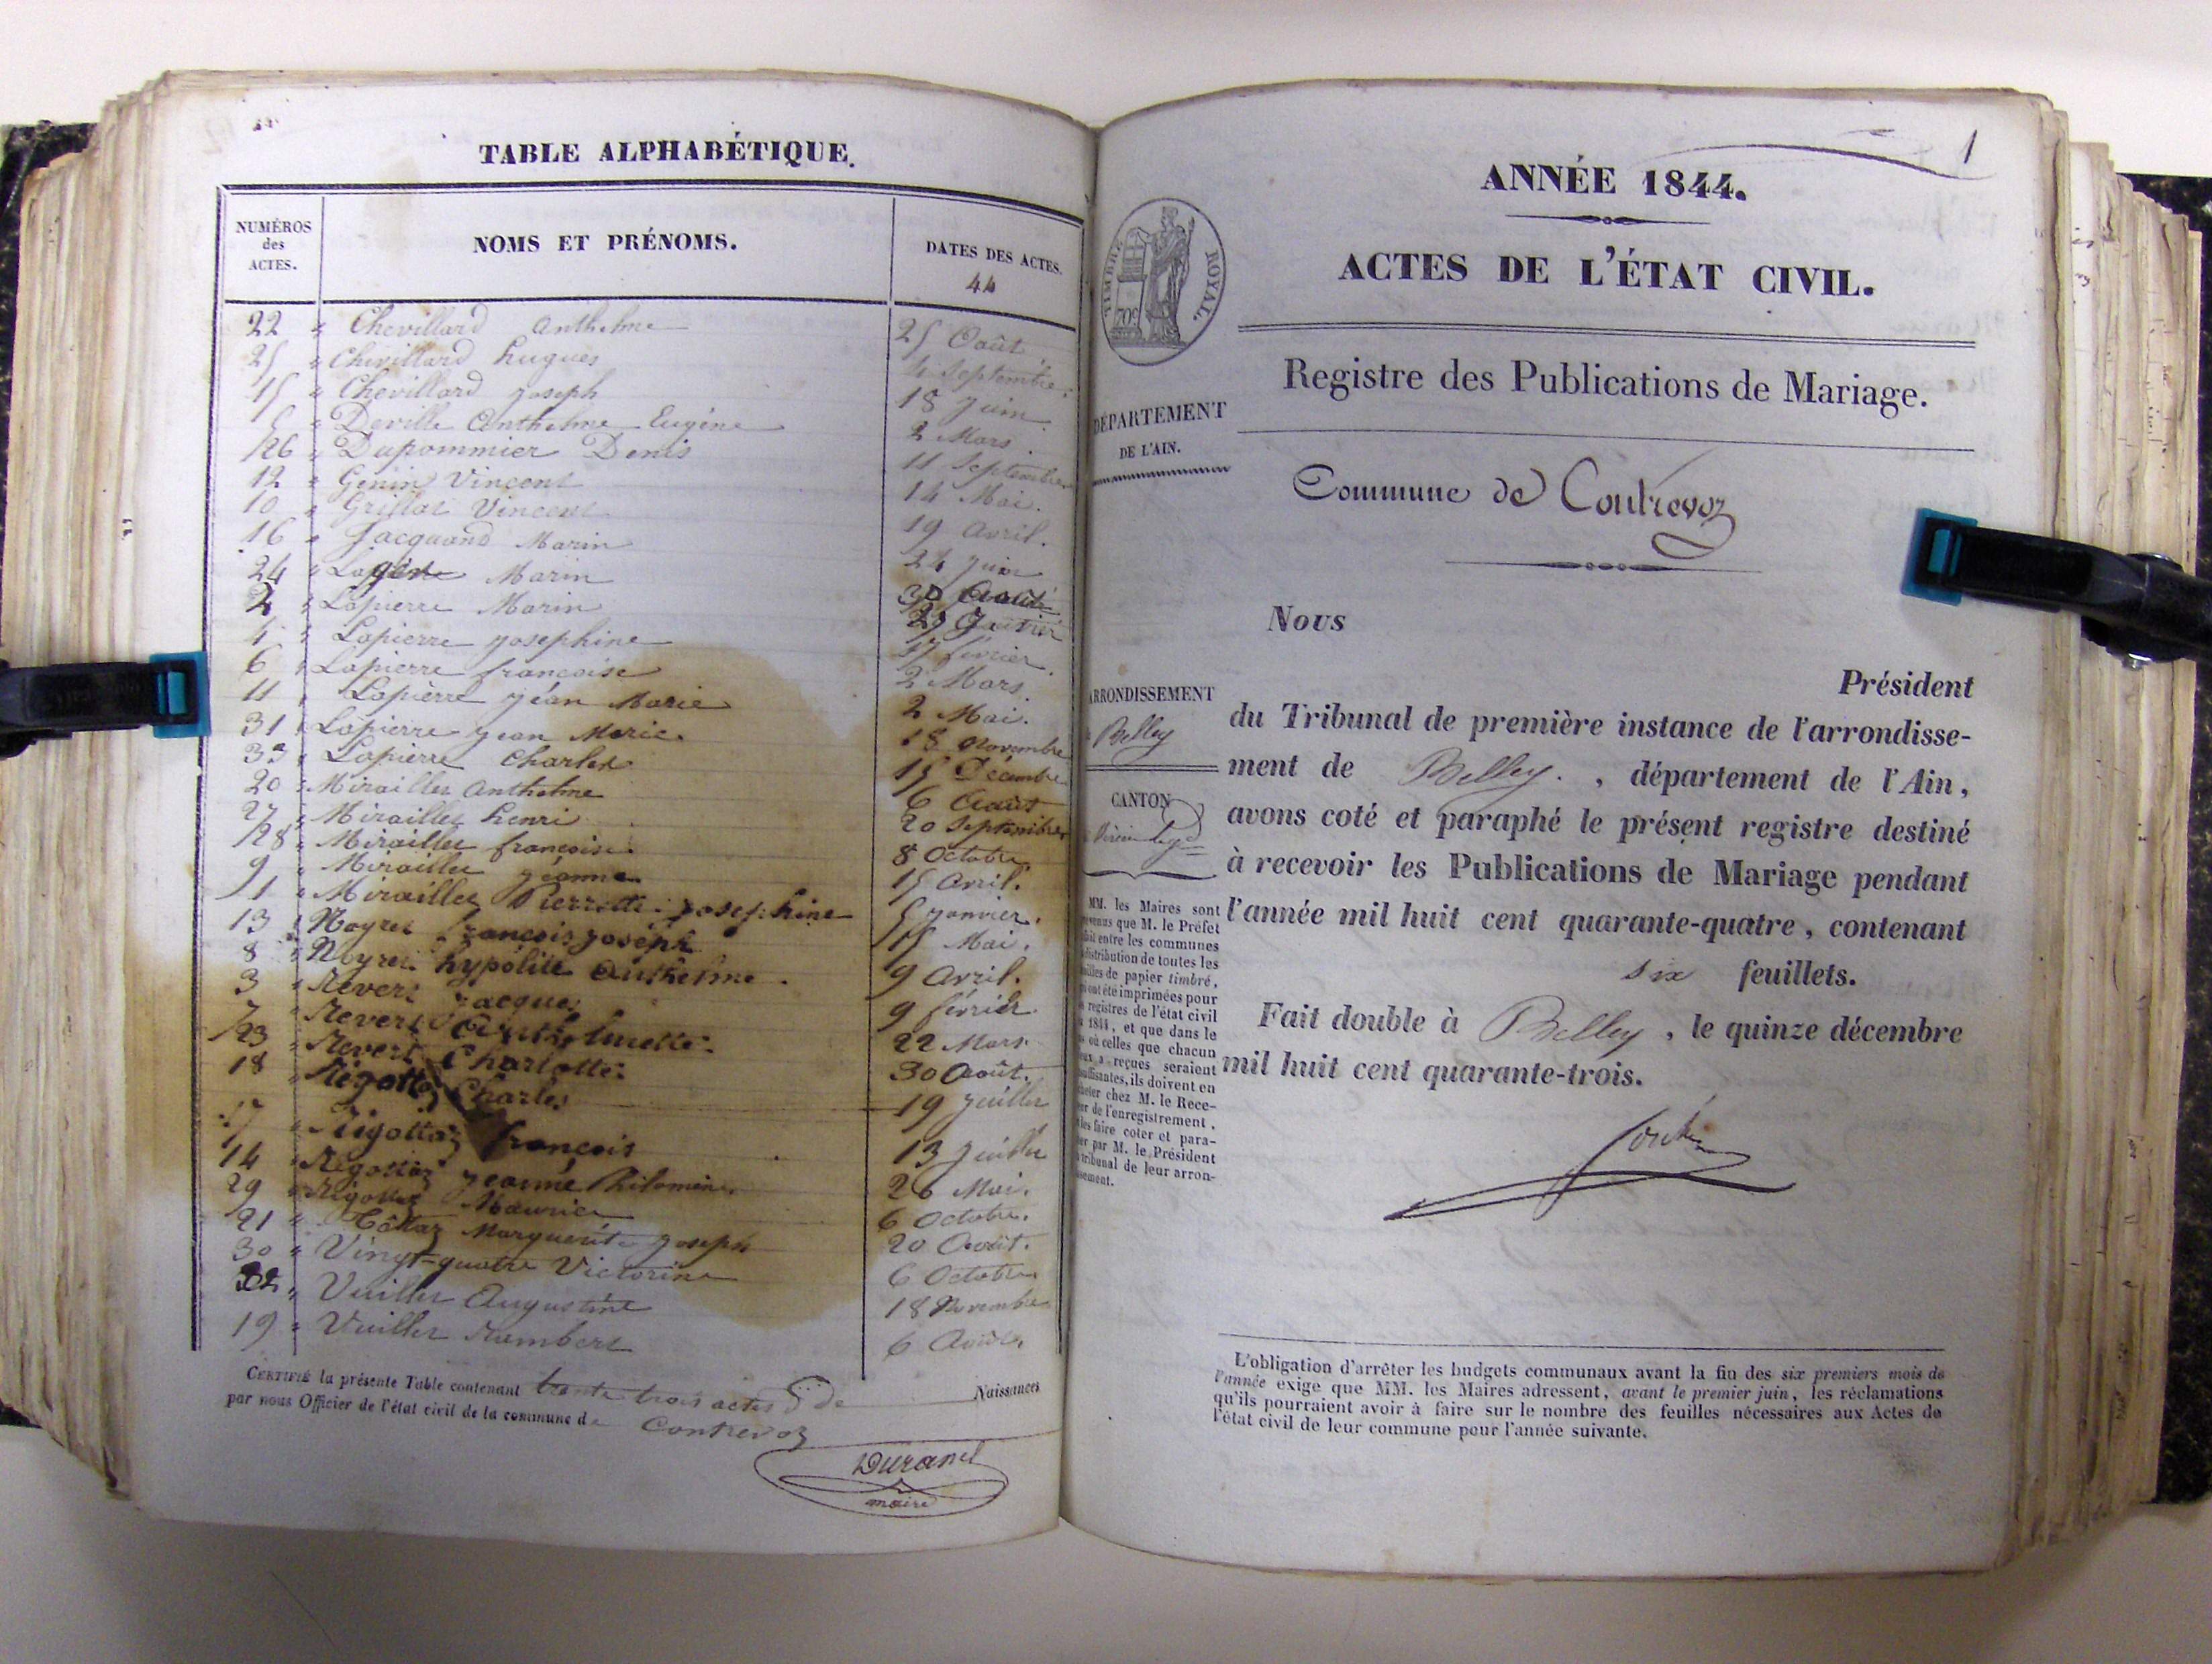 TABLE ALPHABÉTIQUE.
NUMÉROS des ACTES. NOMS ET PRÉNOMS. DATES DES ACTES.
44
22 " Chevillard Anthelme 25 Août
25 " Chevillard hugues 4 Septembre
15 " Chevillard joseph 18 juin
5 " Deville Anthelme Eugène 2 Mars
26 " Dupommier Denis 11 Septembre
12 " Genin Vincent 14 Mai.
10 " Grillat Vincent 19 avril.
16 " Jacquand Marin 24 juin
24 " Marin 30 Août
2 " Lapierre Marin 29 Janvier
4 " Lapierre josephine 17 février
6 " Lapierre françoise 2 Mars
11 " Lapierre jéan Marie 2 Mai.
31 " Lapierre jean Marie. 18 Novembre
33 " Lapierre Charles 15 Décembre
20 " Mirailles Anthelme 6 Août
27 " Mirailles henri 20 Septembre
28 " Mirailles françoise. 8 Octobre
9 " Mirailles jéanne 15 Avril.
1 " Mirailles Pierrette josephine 5 janvier.
13 " Noyret françois joséph 15 Mai.
8 " Noyret hypolite Anthelme. 9 avril.
3 " Revert Jacques 9 février
7 " Revert Anthelmette. 22 Mars
23 " Revert Charlotte. 30 Août.
18 " Rigottaz Charles 19 juillet
17 " Rigottaz françois 13 juillet
14 " Rigottaz jeanne Philomène. 26 Mai.
29 " Rigottaz Maurice 6 Octobre.
21 " Marguerite joseph 20 Août.
30 " Vingt-quatre Victorine 6 Octobre
32 " Vuillet Augustine 18 Novembre
19 " Vuillet Rambert 6 Août.
CERTIFIÉ la présente Table contenant trente trois actes de Naissances
par nous Officier de l'état civil de la commune de Contrevoz
Durand
maire
1
ANNÉE 1844.
ACTES DE L'ÉTAT CIVIL.
TIMBRE ROYAL.
70c
Registre des Publications de Mariage.
DÉPARTEMENT
DE L'AIN.
Commune de Contrevoz
Nous
Président
du Tribunal de première instance de l'arrondisse-
ment de Belley. , département de l'Ain,
avons coté et paraphé le présent registre destiné
à recevoir les Publications de Mariage pendant
l'année mil huit cent quarante-quatre, contenant
six feuillets.
Fait double à Belley, le quinze décembre
mil huit cent quarante-trois.
ARRONDISSEMENT
Belley
CANTON
MM. les Maires sont
que M. le Préfet
entre les communes
distribution de toutes les
de papier timbré,
ont été imprimées pour
registres de l'état civil
1844, et que dans le
où celles que chacun
a reçues seraient
ils doivent en
chez M. le Rece-
de l'enregistrement,
les faire coter et para-
par M. le Président
tribunal de leur arron-
L'obligation d'arrêter les budgets communaux avant la fin des six premiers mois de
l'année exige que MM. les Maires adressent, avant le premier juin, les réclamations
qu'ils pourraient avoir à faire sur le nombre des feuilles nécessaires aux Actes de
l'état civil de leur commune pour l'année suivante.